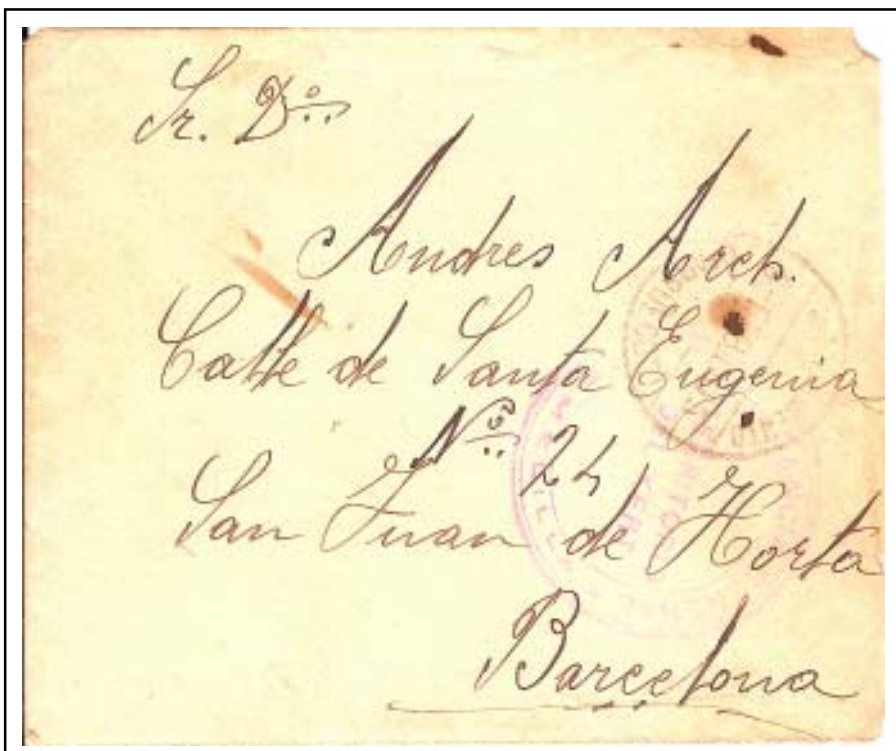 Sr. Dº
Andres Arch.
Calle de Santa Eugenia
Nº 24
San Juan de Horta
Barcelona